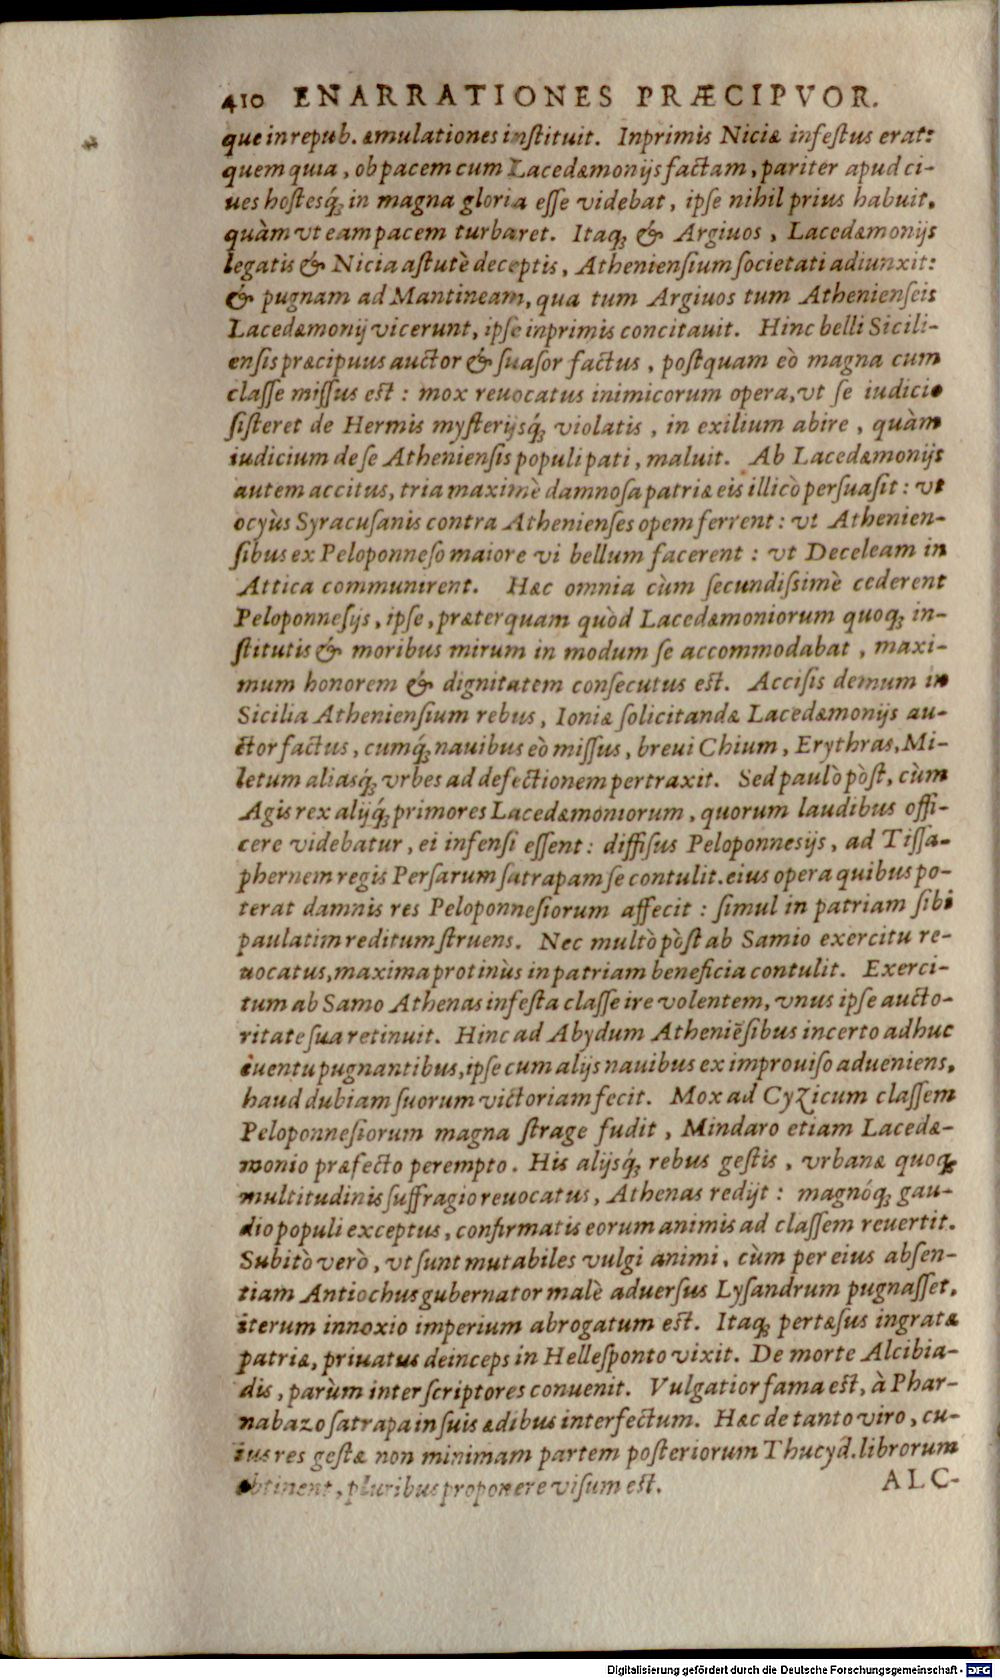 410 ENARRATIONES PRÆCIPVOR.
que in repub. æmulationes instituit. Inprimis Niciæ infestus erat:
quem quia, ob pacem cum Lacedæmonijs factam, pariter apud ci-
ues hostesq́; in magna gloria esse videbat, ipse nihil prius habuit,
quàm vt eam pacem turbaret. Itaq; & Argiuos, Lacedæmonijs
legatis & Nicia astutè deceptis, Atheniensium societati adiunxit:
& pugnam ad Mantineam, qua tum Argiuos tum Athenienseis
Lacedæmonij vicerunt, ipse inprimis concitauit. Hinc belli Sicili-
ensis præcipuus auctor & suasor factus, postquam eò magna cum
classe missus est: mox reuocatus inimicorum opera, vt se iudicio
sisteret de Hermis mysterijsq́; violatis, in exilium abire, quàm
iudicium de se Atheniensis populi pati, maluit. Ab Lacedæmonijs
autem accitus, tria maximè damnosa patriæ eis illicò persuasit: vt
ocyùs Syracusanis contra Athenienses opem ferrent: vt Athenien-
sibus ex Peloponneso maiore vi bellum facerent: vt Deceleam in
Attica communirent. Hæc omnia cùm secundissimè cederent
Peloponnesijs, ipse, præterquam quòd Lacedæmoniorum quoq; in-
stitutis & moribus mirum in modum se accommodabat, maxi-
mum honorem & dignitatem consecutus est. Accisis demum in
Sicilia Atheniensium rebus, Ioniæ solicitandæ Lacedæmonijs au-
ctor factus, cumq́; nauibus eò missus, breui Chium, Erythras, Mi-
letum aliasq́; vrbes ad defectionem pertraxit. Sed paulò pòst, cùm
Agis rex alijq́; primores Lacedæmoniorum, quorum laudibus offi-
cere videbatur, ei infensi essent: diffisus Peloponnesijs, ad Tissa-
phernem regis Persarum satrapam se contulit. eius opera quibus po-
terat damnis res Peloponnesiorum affecit: simul in patriam sibi
paulatim reditum struens. Nec multò pòst ab Samio exercitu re-
uocatus, maxima protinùs in patriam beneficia contulit. Exerci-
tum ab Samo Athenas infesta classe ire volentem, vnus ipse aucto-
ritate sua retinuit. Hinc ad Abydum Atheniēsibus incerto adhuc
euentu pugnantibus, ipse cum alijs nauibus ex improuiso adueniens,
haud dubiam suorum victoriam fecit. Mox ad Cyzicum classem
Peloponnesiorum magna strage fudit, Mindaro etiam Lacedæ-
monio præfecto perempto. His alijsq́; rebus gestis, vrbanæ quoq;
multitudinis suffragio reuocatus, Athenas redijt: magnóq; gau-
dio populi exceptus, confirmatis eorum animis ad classem reuertit.
Subitò verò, vt sunt mutabiles vulgi animi, cùm per eius absen-
tiam Antiochus gubernator malè aduersus Lysandrum pugnasset,
iterum innoxio imperium abrogatum est. Itaq; pertæsus ingratæ
patriæ, priuatus deinceps in Hellesponto vixit. De morte Alcibia-
dis, parùm inter scriptores conuenit. Vulgatior fama est, à Phar-
nabazo satrapa in suis ædibus interfectum. Hæc de tanto viro, cu-
ius res gestæ non minimam partem posteriorum Thucyd. librorum
obtinent, pluribus proponere visum est.
ALC-
Digitalisierung gefördert durch die Deutsche Forschungsgemeinschaft - DFG